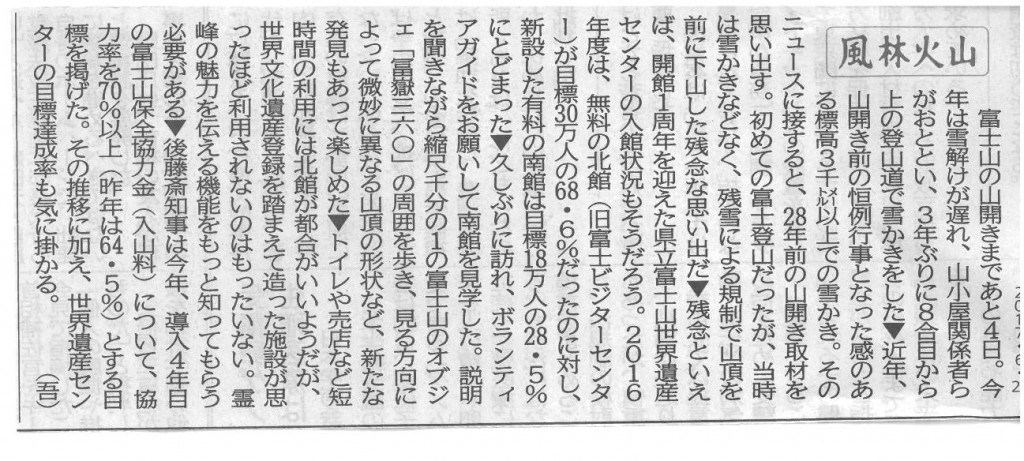 風林火山
富士山の山開きまであと4日。今
年は雪解けが遅れ、山小屋関係者ら
がおととい、3年ぶりに8合目から
上の登山道で雪かきをした▼近年、
山開き前の恒例行事となった感のあ
る標高3千㍍以上での雪かき。その
ニュースに接すると、28年前の山開き取材を
思い出す。初めての富士登山だったが、当時
は雪かきなどなく、残雪による規制で山頂を
前に下山した残念な思い出だ▼残念といえ
ば、開館1周年を迎えた県立富士山世界遺産
センターの入館状況もそうだろう。2016
年度は、無料の北館(旧富士ビジターセンタ
ー)が目標30万人の68・6%だったのに対し、
新設した有料の南館は目標18万人の28・5%
にとどまった▼久しぶりに訪れ、ボランティ
アガイドをお願いして南館を見学した。説明
を聞きながら縮尺千分の1の富士山のオブジ
ェ「冨嶽三六〇」の周囲を歩き、見る方向に
よって微妙に異なる山頂の形状など、新たな
発見もあって楽しめた▼トイレや売店など短
時間の利用には北館が都合がいいようだが、
世界文化遺産登録を踏まえて造った施設が思
ったほど利用されないのはもったいない。霊
峰の魅力を伝える機能をもっと知ってもらう
必要がある▼後藤斎知事は今年、導入4年目
の富士山保全協力金(入山料)について、協
力率を70%以上(昨年は64・5%)とする目
標を掲げた。その推移に加え、世界遺産セン
ターの目標達成率も気に掛かる。　(吾)